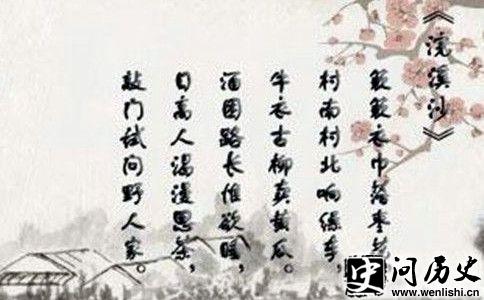 《浣溪沙》
簌簌衣巾落枣
村南村北响缲车,
牛衣古柳卖黄瓜。
酒困路长惟欲睡,
日高人渴漫思茶,
敲门试问野人家。
史问历史
www.wenlishi.cn